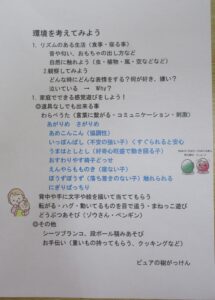 環境を考えてみよう
1. リズムのある生活(食事・寝る事)
音や匂い、おもちゃの出し方など
自然に触れよう(虫・植物・風・空などなど)
2.観察してみよう
どんな時にどんな表情をする?何が好き、嫌い?
泣いている → Why?
1. 家庭でできる感覚遊びをしよう!
◎道具なしでも出来る事
わらべうた(言葉に繋がる・コミュニケーション・刺激)
あがりめ さがりめ
あめこんこん(協調性)
いっぽんばし(不安の強い子)くすぐられると安心
うまはとしとし(好奇心旺盛で動き回る子)
おすわりやす椅子どっせ
えんやらもものき(座ない子)
ぼうずぼうず(落ち着きのない子)触れられる
にぎりぱっちり
背中や手に文字や絵を描いて当ててもらう
転がる・ハグ・動いてるものを目で追う・まねっこ遊び
どうぶつあそび(ゾウさん・ペンギン)
◎その他
シーツブランコ、段ボール積みあそび
お手伝い(重いもの持ってもらう、クッキングなど)
ピュアの樹がっけん